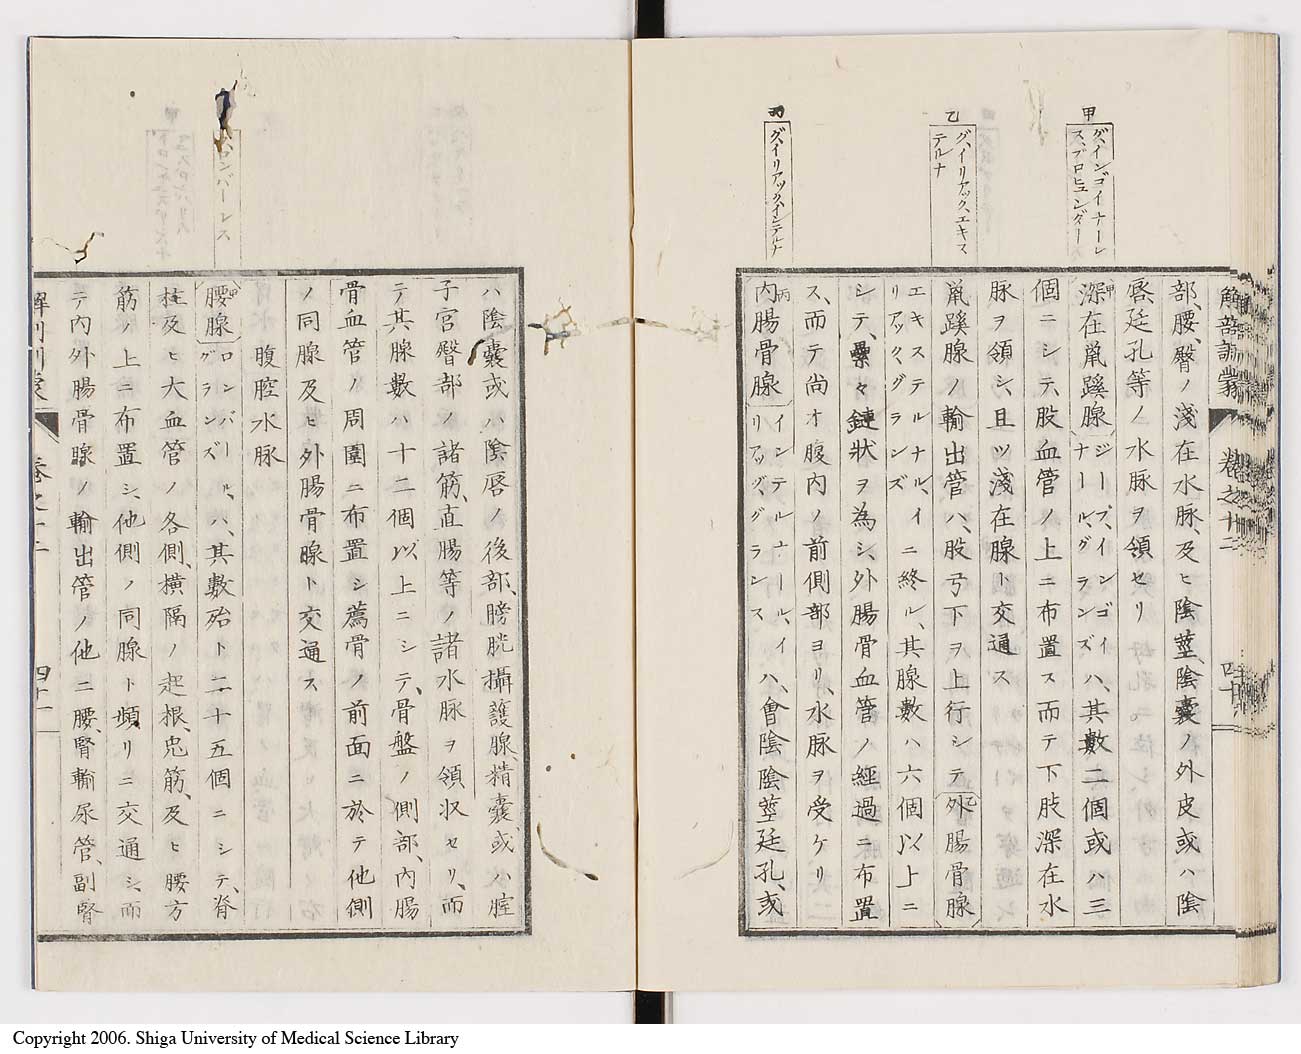 解剖訓蒙 卷之十二 四十
甲
グ、インゴイナーレ
ス、プロヒュンダー
乙
グ、イリアック、エキス
テルナ
丙
グ、イリアック、インテルナ
部、腰、臀ノ淺在水脉、及ヒ陰莖、陰嚢ノ外皮或ハ陰
唇、廷孔等ノ水脉ヲ領セリ
深在鼠蹊腺ジープ、インゴイナール、グランズハ、其數二個或ハ三
個ニシテ、股血管ノ上ニ布置ス而テ下肢深在水
脉ヲ領シ、且ツ淺在腺ト交通ス
鼠蹊腺ノ輸出管ハ、股弓下ヲ上行シテ外腸骨腺
エキステルナル、イリアック、グランズニ終ル、其腺數ハ六個以上ニ
シテ、纍々鏈狀ヲ為シ、外腸骨血管ノ經過ニ布置
ス、而テ尚オ腹内ノ前側部ヨリ、水脉ヲ受ケリ
内腸骨腺インテルナール、イリアック、グランスハ、會陰陰莖廷孔、或
ハ陰嚢或ハ陰唇ノ後部、膀胱攝護腺、精嚢、或ハ腟
子宮臀部ノ諸筋、直腸等ノ諸水脉ヲ領收セリ、而
テ其腺數ハ十二個以上ニシテ、骨盤ノ側部、内腸
骨血管ノ周圍ニ布置シ薦骨ノ前面ニ於テ他側
ノ同腺及ヒ外腸骨腺ト交通ス
腹腔水脉
腰腺ロンバール、グランズハ、其數殆ト二十五個ニシテ、脊
柱及ヒ大血管ノ各側、横隔ノ起根、皃筋、及ヒ腰方
筋上ニ布置シ、他側ノ同腺ト頻リニ交通シ、而
テ内外腸骨腺ノ輸出管ノ他ニ腰、腎輸尿管、副腎
ロンバーレス
卷之十二 四十一